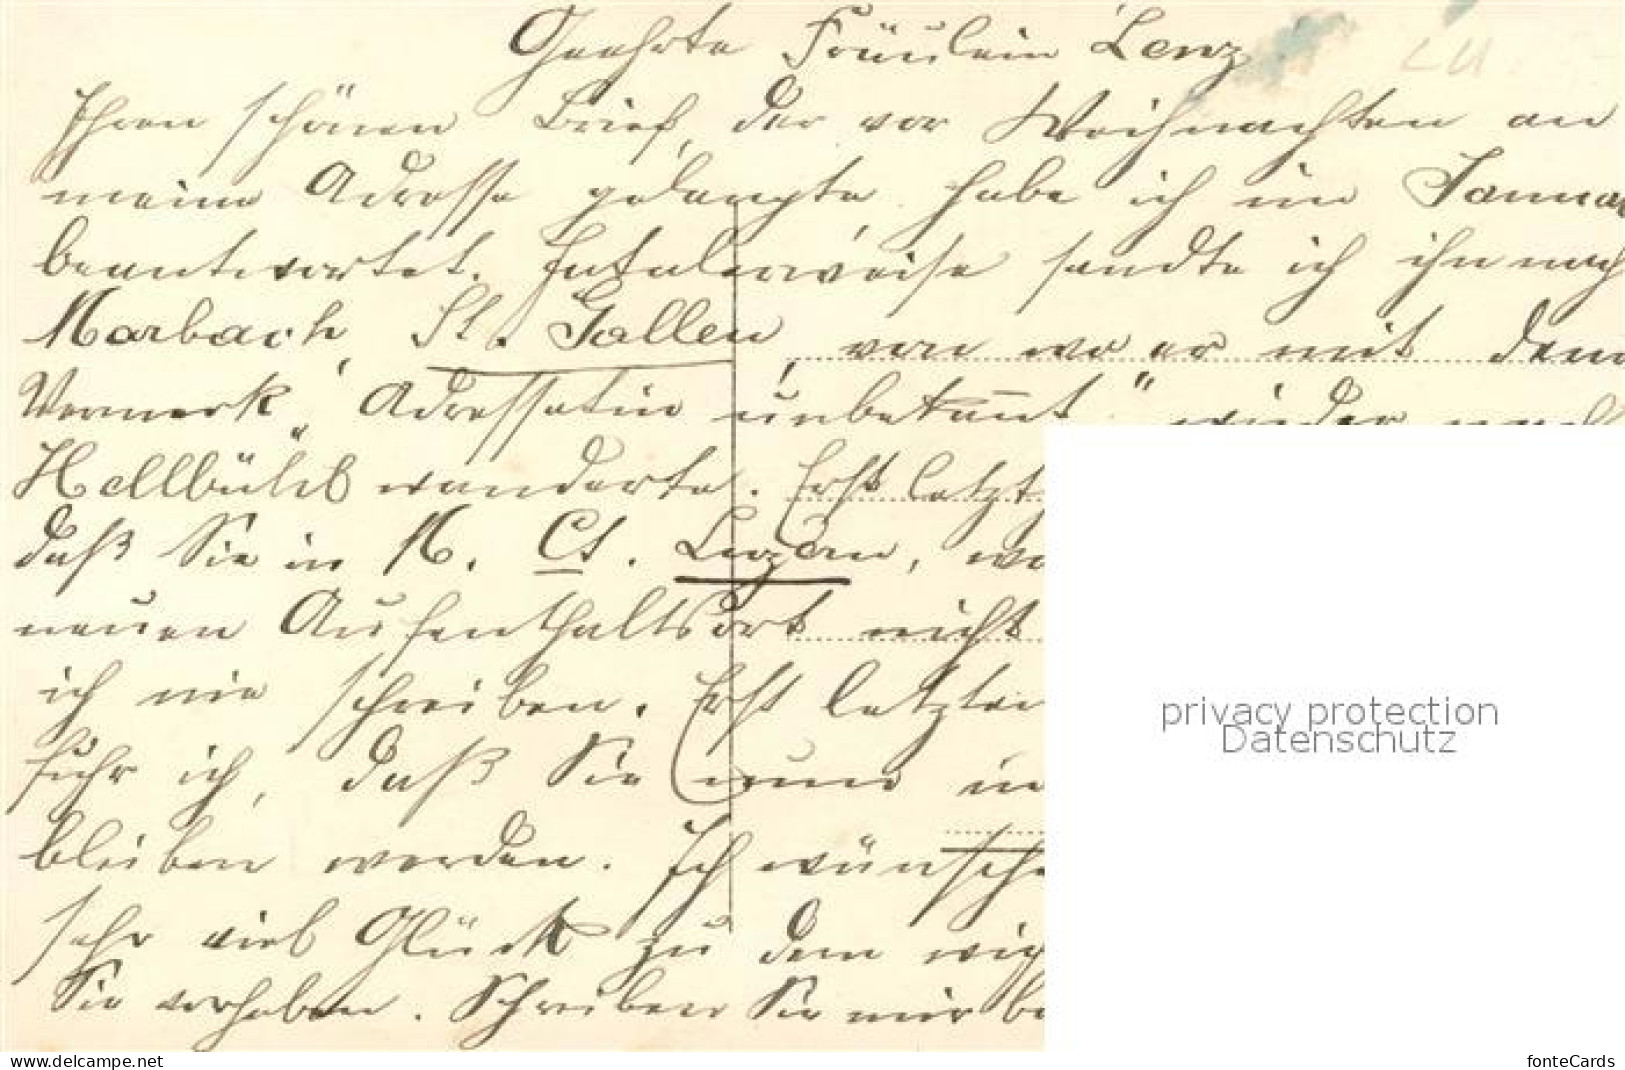 Geehrte Fräulein Lenz
Ihren schönen Brief, der vor Weihnachten an
meine Adresse gelangte, habe ich im Januar
beantwortet. Fatalerweise sandte ich ihn nach
Marbach, St. Gallen, von wo er mit dem
Vermerk „Adressatin unbekannt" wieder nach
Hellbühl wanderte. Erst letzt
daß Sie in M. Ct. Luzern, wo
neuen Aufenthaltsort nicht
ich nie schreiben. Erst letzter
fuhr ich, daß Sie nun in
bleiben werden. Ich wünsche
sehr viel Glück zu dem
Sie vorhaben. Schreiben Sie mir
LU
privacy protection
Datenschutz
www.delcampe.net
fonteCards